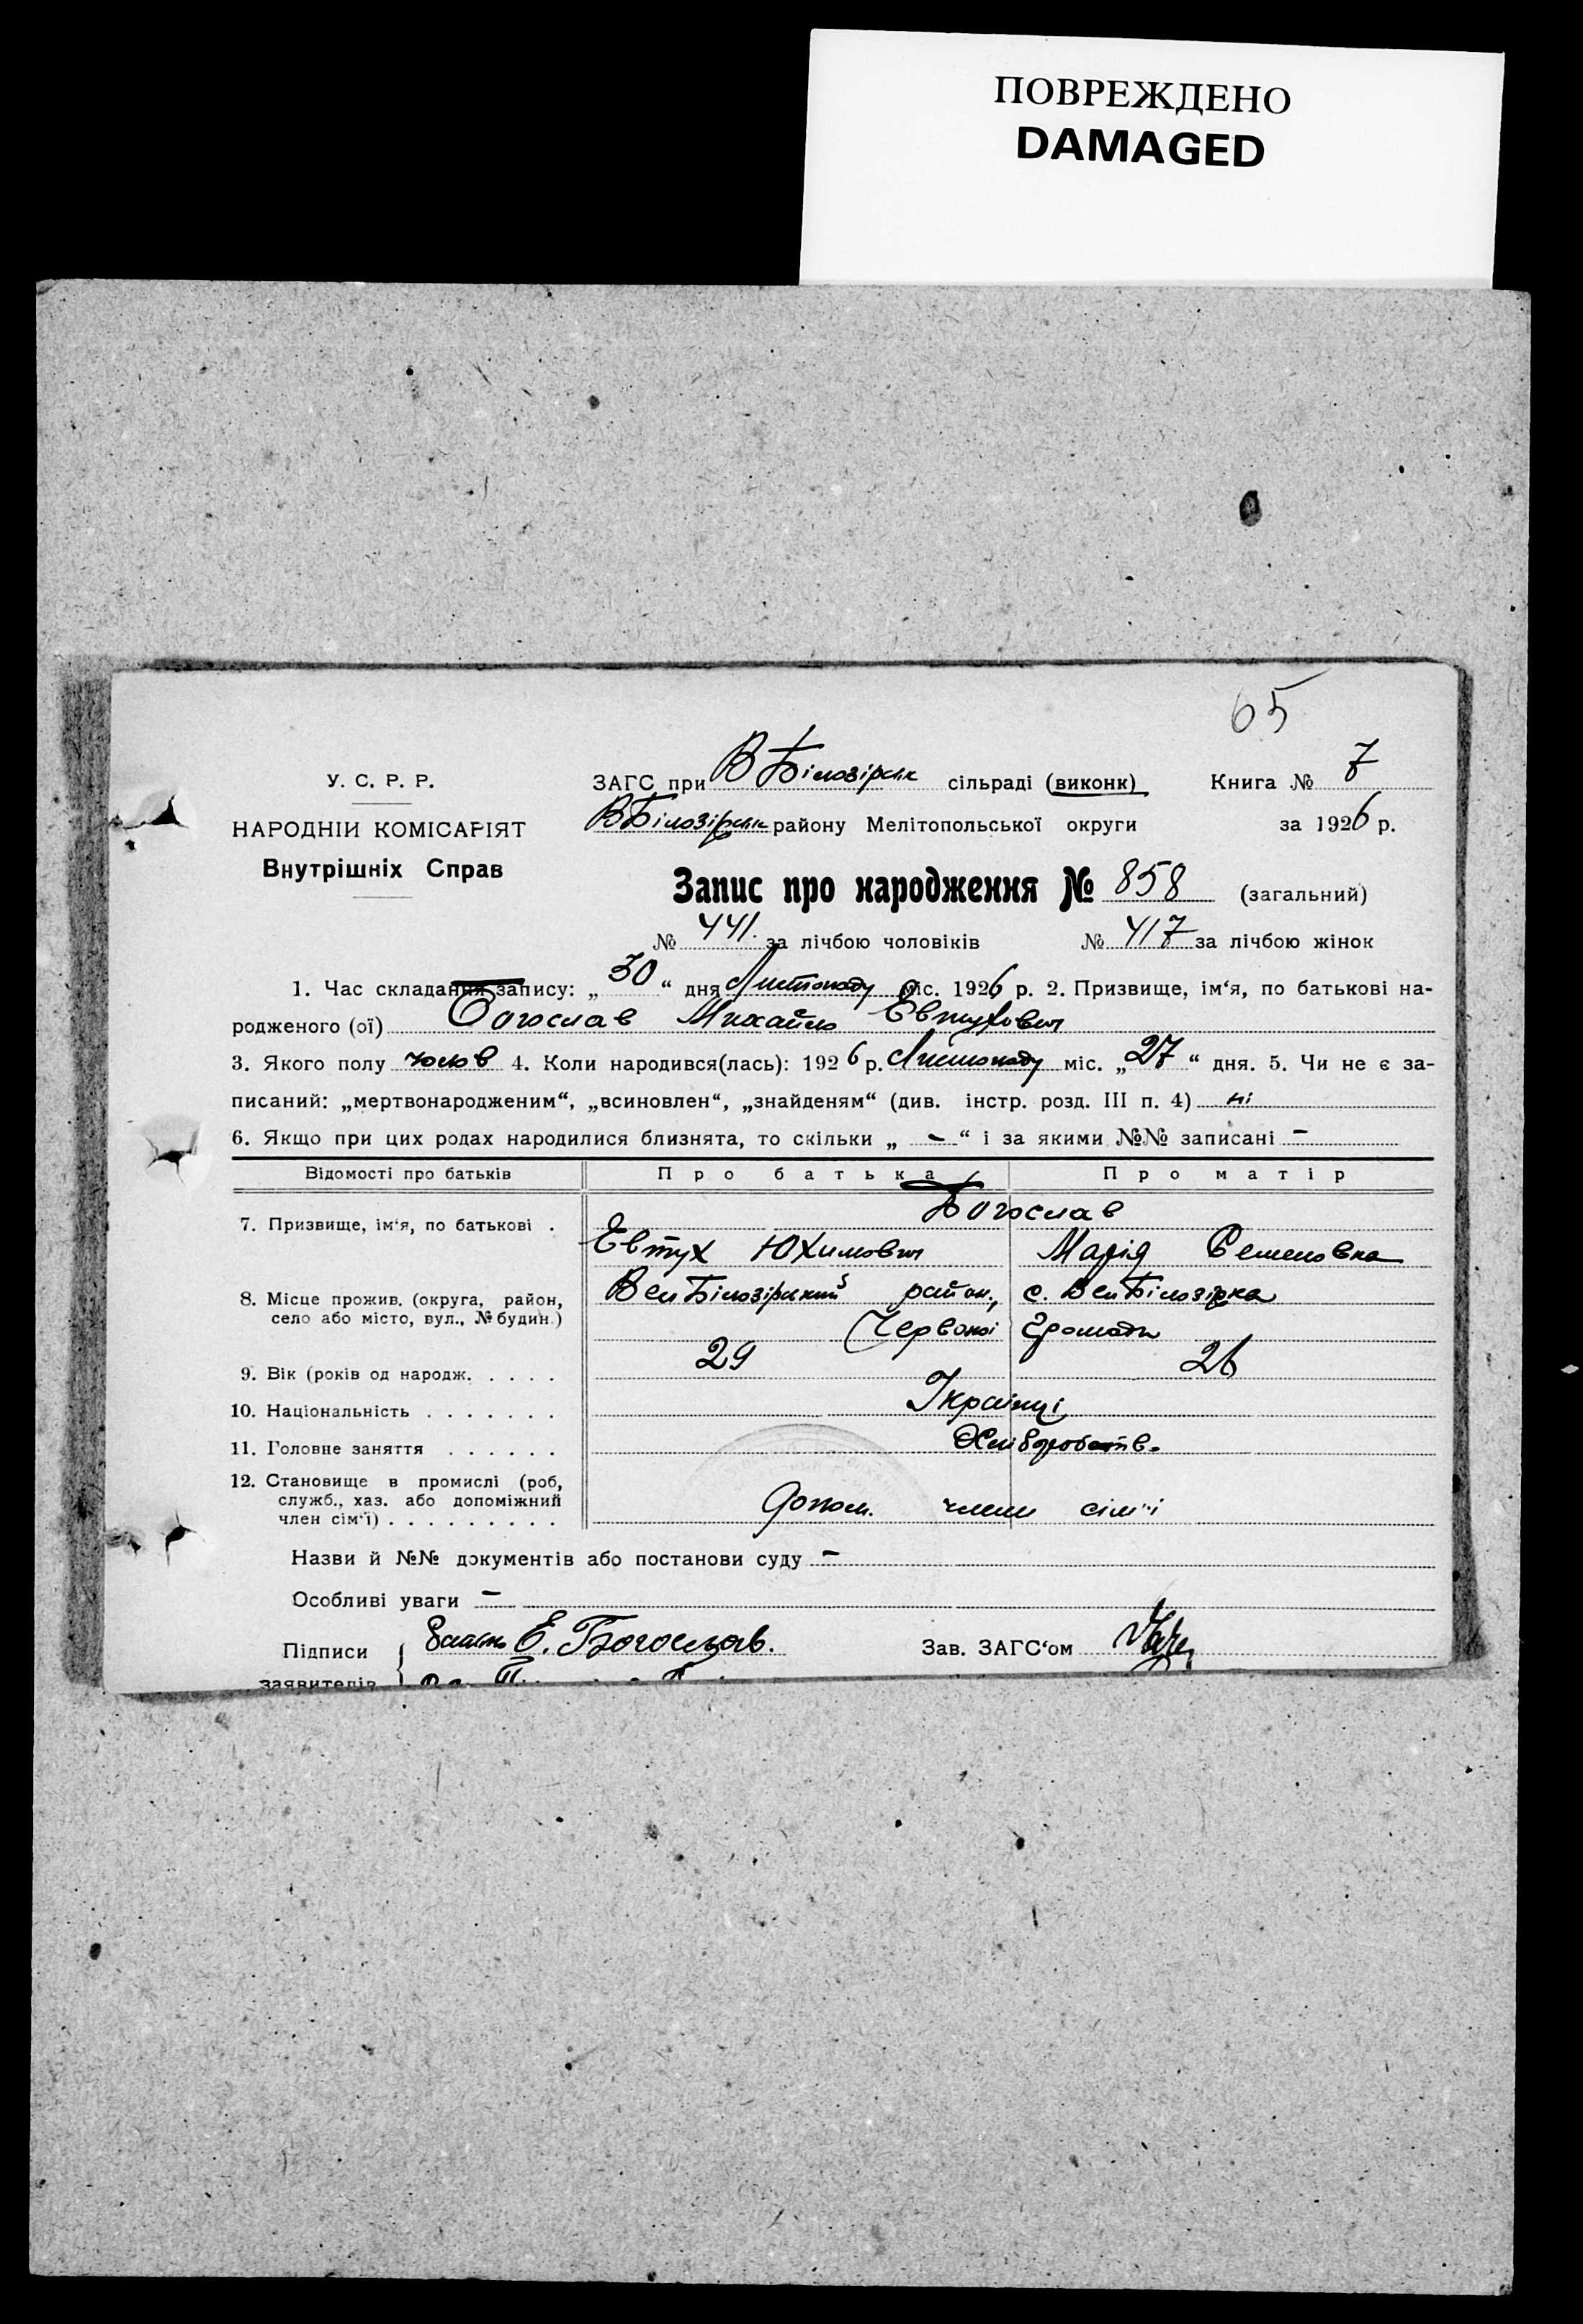 ПОВРЕЖДЕНО
DAMAGED
65
У. С. Р. Р.
НАРОДНІЙ КОМІСАРІЯТ
Внутрішніх Справ
ЗАГС при В Білозірськ сільраді (виконк) Книга № 7
В Білозірськ району Мелітопольської округи за 1926 р.
Запис про народження № 858 (загальний)
№ 441. за лічбою чоловіків № 417 за лічбою жінок
1. Час складання запису: „30“ дня Листопаду міс. 1926 р. 2. Призвище, ім‘я, по батькові на-
родженого (ої) Богослав Михайло Евтухович
3. Якого полу чолов 4. Коли народився(лась): 1926 р. Листопаду міс. „27“ дня. 5. Чи не є за-
писаний: „мертвонародженим“, „всиновлен“, „знайденям“ (див. інстр. розд. III п. 4) ні
6. Якщо при цих родах народилися близнята, то скільки „ - “ і за якими №№ записані -
Відомості про батьків Про батька Про матір
7. Призвище, ім‘я, по батькові . Богослав
Евтух Юхимович Марія Семеновна
8. Місце прожив. (округа, район, село або місто, вул., № будин.) Вел Білозірський район., с. Вел Білозірка
Червоної Громади
9. Вік (років од народж. . . . . 29 26
10. Національність . . . . . . . Українці
11. Головне заняття . . . . . . Хліборобств.
12. Становище в промислі (роб, служб., хаз. або допоміжний член сім‘ї) . . . . . . . . . допом. члени сім'ї
Назви й №№ документів або постанови суду -
Особливі уваги -
Підписи Е. Богослав. Зав. ЗАГС‘ом
заявителів